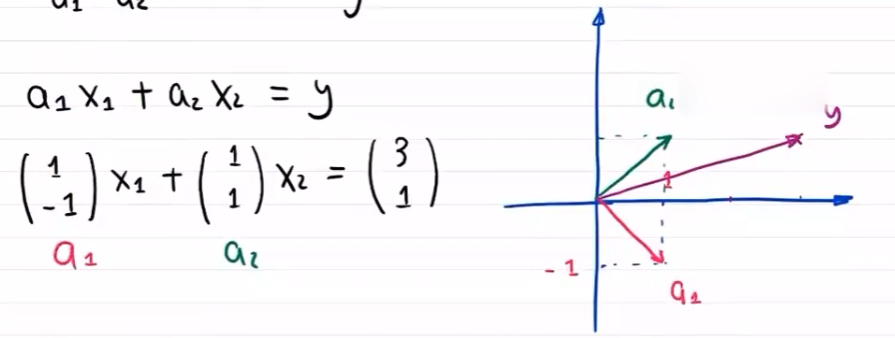 a₁ a₂ y
a₁ x₁ + a₂ x₂ = y
(1 -1) x₁ + (1 1) x₂ = (3 1)
a₁ a₂
a₁
y
1
-1
a₁